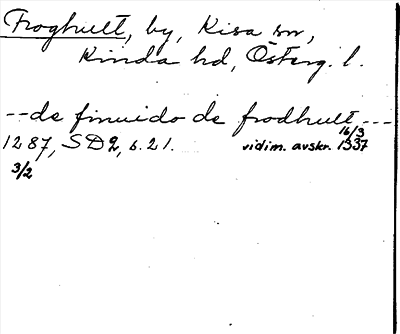 Froghult, by, Kisa sn,
Kinda hd, Österg. l.
--de finuido de frodhult---
1287, SD2, s. 21. vidim. avskr. 16/3 1337
3/2